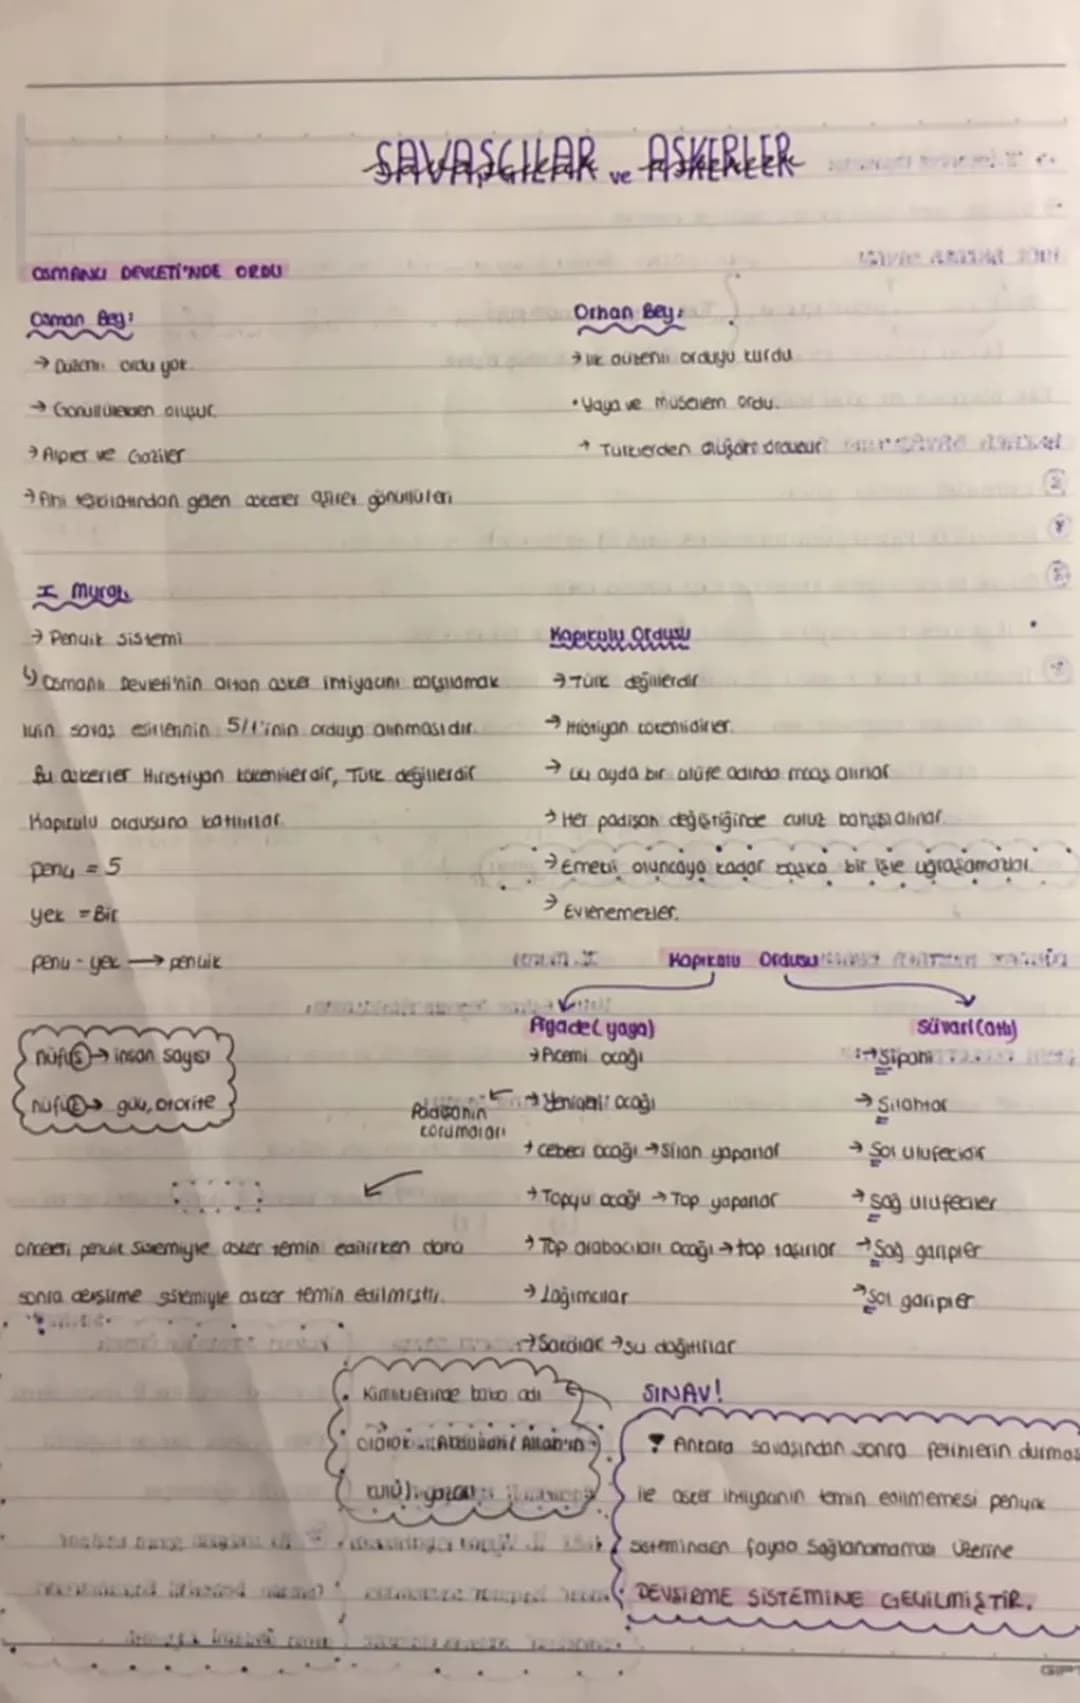 SAVAŞÇILAR ve ASKERLER
OSMANLI DEVLETİ'NDE ORDU
Osman Bey:
→ Düzenli ordu yok.
→ Gönüllülerden oluşur.
→ Alpler ve Gaziler
→ Ahi teşkilatından gelen askerler aşiret gönüllüleri
Orhan Bey:
→ İlk düzenli orduyu kurdu
• Yaya ve müsellem ordu.
→ Türklerden oluşan ordudur
I Murat
→ Pençik sistemi
↳ Osmanlı Devleti'nin artan asker ihtiyacını karşılamak
için savaş esirlerinin 5/1'inin orduya alınmasıdır.
Bu askerler Hıristiyan kökenlilerdir, Türk değillerdir
Kapıkulu ordusuna katılırlar.
penç = 5
yek = Bir
penç - yek → pençik
Kapıkulu Ordusu
→ Türk değillerdir
→ Hristiyan kökenlidirler.
→ üç ayda bir ulüfe adında maaş alırlar
→ Her padişah değiştiğinde culüz bahşişi alırlar.
→ Emekli oluncaya kadar başka bir işle uğraşamazlar.
→ Evlenemezler.
Kapıkulu Ordusu
Piyade (yaya)
→ Acemi ocağı
→ Yeniçeri ocağı
Padişahın
korumaları
→ Cebeci ocağı → Silah yaparlar
→ Topçu ocağı → Top yaparlar
→ Top arabacıları ocağı → top taşırlar
→ Lağımcılar
→ Sakalar → su dağıtırlar
Süvari (atlı)
→ Sipahi
→ Silahtar
→ Sol ulufeciler
→ Sağ ulufeciler
→ Sağ garipler
→ Sol garipler
nüfus → insan sayısı
nüfuz → güç, otorite
önceleri pençik sistemiyle asker temin edilirken daha
sonra devşirme sistemiyle asker temin edilmiştir.
Kimliklerinde baba adı
olarak Abdullah (Allah'ın
kulu) yazar
SINAV!
Ankara savaşından sonra fetihlerin durması
ile asker ihtiyacının temin edilmemesi pençik
sisteminden fayda sağlanamaması üzerine
DEVŞİRME SİSTEMİNE GEÇİLMİŞTİR.